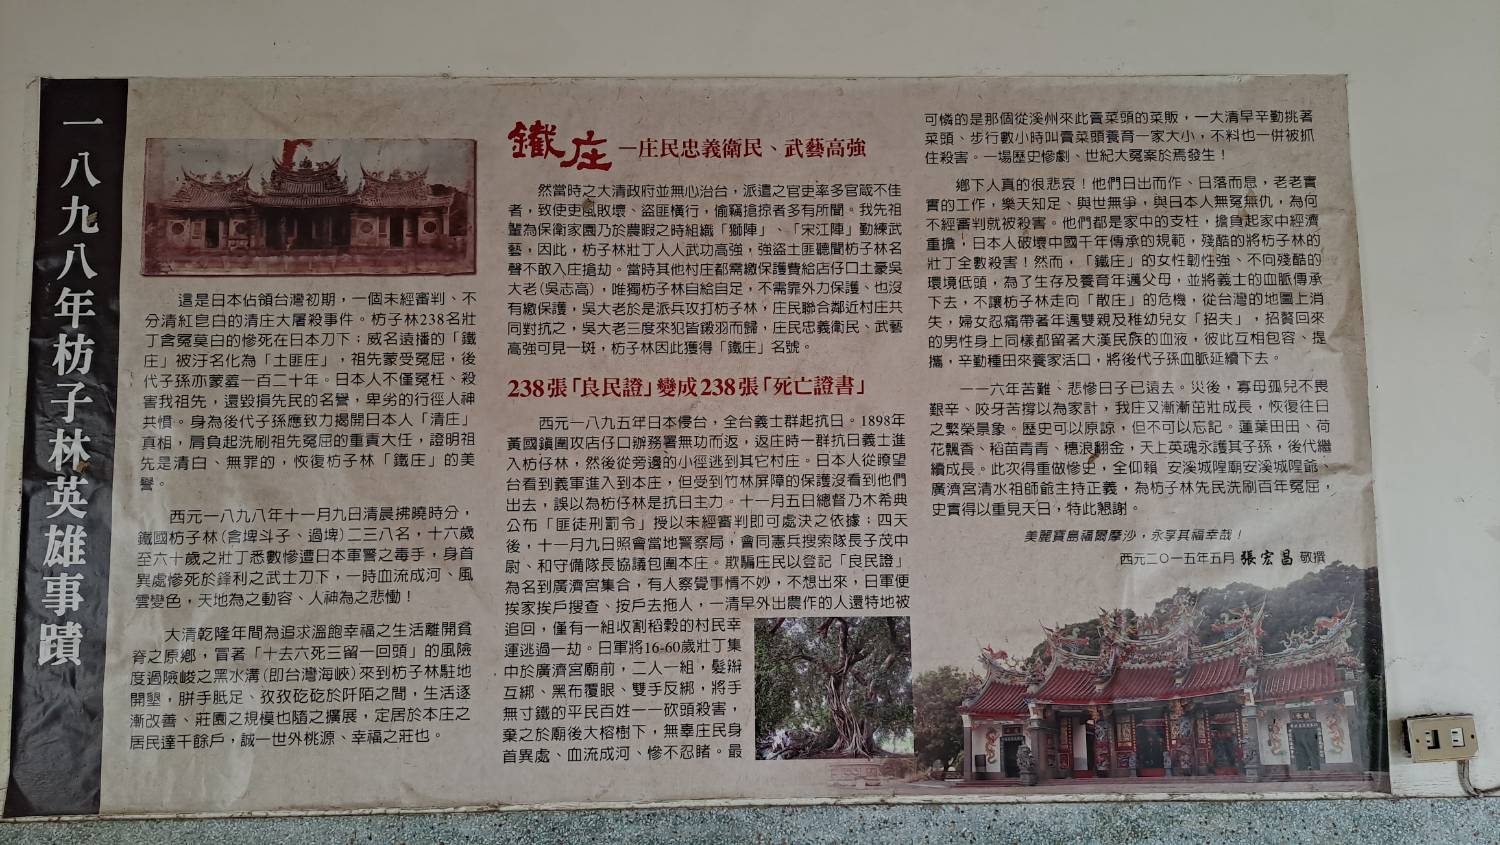 一八九八年枋子林英雄事蹟
這是日本佔領台灣初期，一個未經審判、不
分清紅皂白的清庄大屠殺事件。枋子林238名壯
丁含冤莫白的慘死在日本刀下；威名遠播的「鐵
庄」被汙名化為「土匪庄」，祖先蒙受冤屈，後
代子孫亦蒙羞一百二十年。日本人不僅冤枉、殺
害我祖先，還毀損先民的名譽，卑劣的行徑人神
共憤。身為後代子孫應致力揭開日本人「清庄」
真相，肩負起洗刷祖先冤屈的重責大任，證明祖
先是清白、無罪的，恢復枋子林「鐵庄」的美
譽。
西元一八九八年十一月九日清晨拂曉時分，
鐵國枋子林(含埤斗子、過埤)二三八名，十六歲
至六十歲之壯丁悉數慘遭日本軍警之毒手，身首
異處慘死於鋒利之武士刀下，一時血流成河、風
雲變色，天地為之動容、人神為之悲慟！
大清乾隆年間為追求溫飽幸福之生活離開貧
脊之原鄉，冒著「十去六死三留一回頭」的風險
度過險峻之黑水溝(即台灣海峽)來到枋子林駐地
開墾，胼手胝足、孜孜矻矻於阡陌之間，生活逐
漸改善、莊園之規模也隨之擴展，定居於本庄之
居民達千餘戶，誠一世外桃源、幸福之莊也。
鐵庄—庄民忠義衛民、武藝高強
然當時之大清政府並無心治台，派遣之官吏率多官箴不佳
者，致使吏風敗壞、盜匪橫行，偷竊搶掠者多有所聞。我先祖
輩為保衛家園乃於農暇之時組織「獅陣」、「宋江陣」勤練武
藝，因此，枋子林壯丁人人武功高強，強盜土匪聽聞枋子林名
聲不敢入庄搶劫。當時其他村庄都需繳保護費給店仔口土豪吳
大老(吳志高)，唯獨枋子林自給自足，不需靠外力保護、也沒
有繳保護，吳大老於是派兵攻打枋子林，庄民聯合鄰近村庄共
同對抗之，吳大老三度來犯皆鎩羽而歸，庄民忠義衛民、武藝
高強可見一斑，枋子林因此獲得「鐵庄」名號。
238張「良民證」變成238張「死亡證書」
西元一八九五年日本侵台，全台義士群起抗日。1898年
黃國鎮圍攻店仔口辦務署無功而返，返庄時一群抗日義士進
入枋仔林，然後從旁邊的小徑逃到其它村庄。日本人從瞭望
台看到義軍進入到本庄，但受到竹林屏障的保護沒看到他們
出去，誤以為枋仔林是抗日主力。十一月五日總督乃木希典
公布「匪徒刑罰令」授以未經審判即可處決之依據；四天
後，十一月九日照會當地警察局，會同憲兵搜索隊長子茂中
尉、和守備隊長協議包圍本庄。欺騙庄民以登記「良民證」
為名到廣濟宮集合，有人察覺事情不妙，不想出來，日軍便
挨家挨戶搜查、按戶去拖人，一清早外出農作的人還特地被
追回，僅有一組收割稻穀的村民幸
運逃過一劫。日軍將16-60歲壯丁集
中於廣濟宮廟前，二人一組，髮辮
互綁、黑布覆眼、雙手反綁，將手
無寸鐵的平民百姓一一砍頭殺害，
棄之於廟後大榕樹下，無辜庄民身
首異處、血流成河、慘不忍睹。最
可憐的是那個從溪州來此賣菜頭的菜販，一大清早辛勤挑著
菜頭、步行數小時叫賣菜頭養育一家大小，不料也一併被抓
住殺害。一場歷史慘劇、世紀大冤案於焉發生！
鄉下人真的很悲哀！他們日出而作、日落而息，老老實
實的工作，樂天知足、與世無爭，與日本人無冤無仇，為何
不經審判就被殺害。他們都是家中的支柱，擔負起家中經濟
重擔，日本人破壞中國千年傳承的規範，殘酷的將枋子林的
壯丁全數殺害！然而，「鐵庄」的女性韌性強、不向殘酷的
環境低頭，為了生存及養育年邁父母，並將義士的血脈傳承
下去，不讓枋子林走向「散庄」的危機，從台灣的地圖上消
失，婦女忍痛帶著年邁雙親及稚幼兒女「招夫」，招贅回來
的男性身上同樣都留著大漢民族的血液，彼此互相包容、提
攜，辛勤種田來養家活口，將後代子孫血脈延續下去。
一一六年苦難、悲慘日子已遠去。災後，寡母孤兒不畏
艱辛、咬牙苦撐以為家計，我庄又漸漸茁壯成長，恢復往日
之繁榮景象。歷史可以原諒，但不可以忘記。蓮葉田田、荷
花飄香、稻苗青青、穗浪翻金，天上英魂永護其子孫，後代繼
續成長。此次得重做慘史，全仰賴 安溪城隍廟安溪城隍爺、
廣濟宮清水祖師爺主持正義，為枋子林先民洗刷百年冤屈，
史實得以重見天日，特此懇謝。
美麗寶島福爾摩沙，永享其福幸哉！
西元二〇一五年五月 張宏昌 敬撰